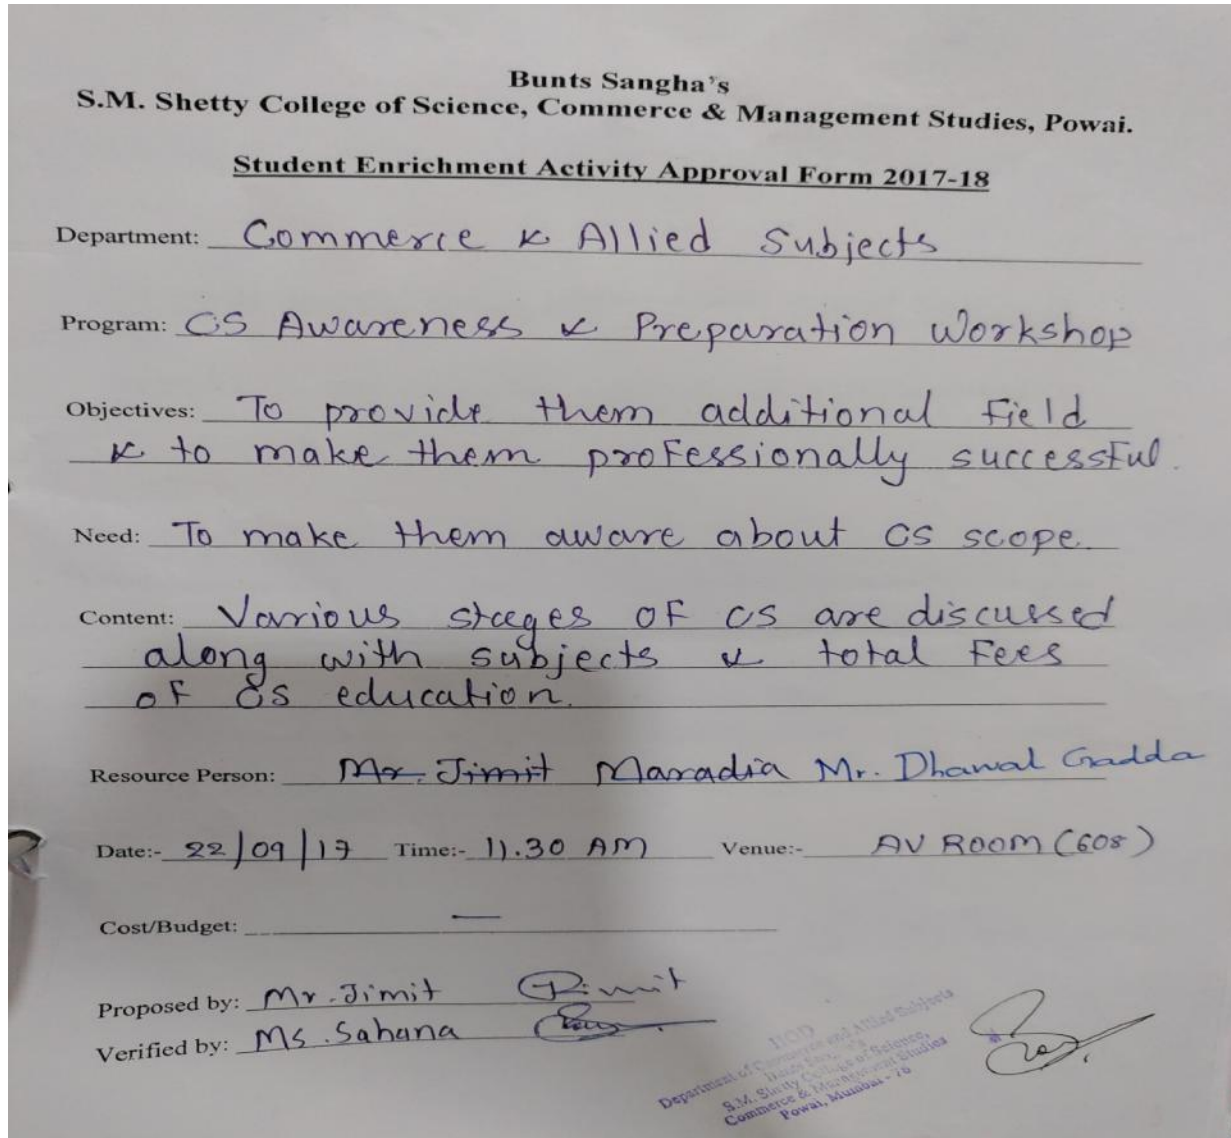 Bunts Sangha's
S.M. Shetty College of Science, Commerce & Management Studies, Powai.
Student Enrichment Activity Approval Form 2017-18
Department: Commerce & Allied Subjects
Program: CS Awareness & Preparation Workshop
Objectives: To provide them additional field
& to make them professionally successful.
Need: To make them aware about CS scope.
Content: Various stages of CS are discussed
along with subjects & total fees
of CS education.
Resource Person: Mr. Jimit Maradia Mr. Dhawal Gadda
Date:- 22/09/17 Time:- 11.30 AM Venue:- AV ROOM (608)
Cost/Budget: —
Proposed by: Mr. Jimit
Verified by: Ms. Sahana
HOD
Department of Commerce and Allied Subjects
Bunts Sangha's
S.M. Shetty College of Science,
Commerce & Management Studies
Powai, Mumbai - 76